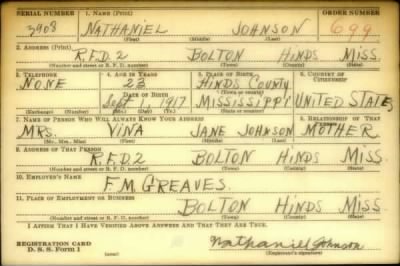 SERIAL NUMBER 1. NAME (Print) ORDER NUMBER
3908 NATHANIEL JOHNSON 699
(First) (Middle) (Last)
2. ADDRESS (Print)
R.F.D.2 BOLTON HINDS MISS.
(Number and street or R. F. D. number) (Town) (County) (State)
3. TELEPHONE 4. AGE IN YEARS 5. PLACE OF BIRTH 6. COUNTRY OF CITIZENSHIP
NONE 23 HINDS COUNTY
DATE OF BIRTH (Town or county)
Sept 1917 MISSISSIPPI UNITED STATES
(Exchange) (Number) (Mo.) (Day) (Yr.) (State or country)
7. NAME OF PERSON WHO WILL ALWAYS KNOW YOUR ADDRESS 8. RELATIONSHIP OF THAT PERSON
MRS. VINA JANE JOHNSON MOTHER
(Mr., Mrs., Miss) (First) (Middle) (Last)
9. ADDRESS OF THAT PERSON
R.F.D.2 BOLTON HINDS MISS.
(Number and street or R. F. D. number) (Town) (County) (State)
10. EMPLOYER'S NAME
F.M. GREAVES
11. PLACE OF EMPLOYMENT OR BUSINESS
BOLTON HINDS MISS
(Number and street or R. F. D. number) (Town) (County) (State)
I AFFIRM THAT I HAVE VERIFIED ABOVE ANSWERS AND THAT THEY ARE TRUE.
REGISTRATION CARD
D. S. S. Form 1 Nathaniel Johnson
(Registrant's signature)